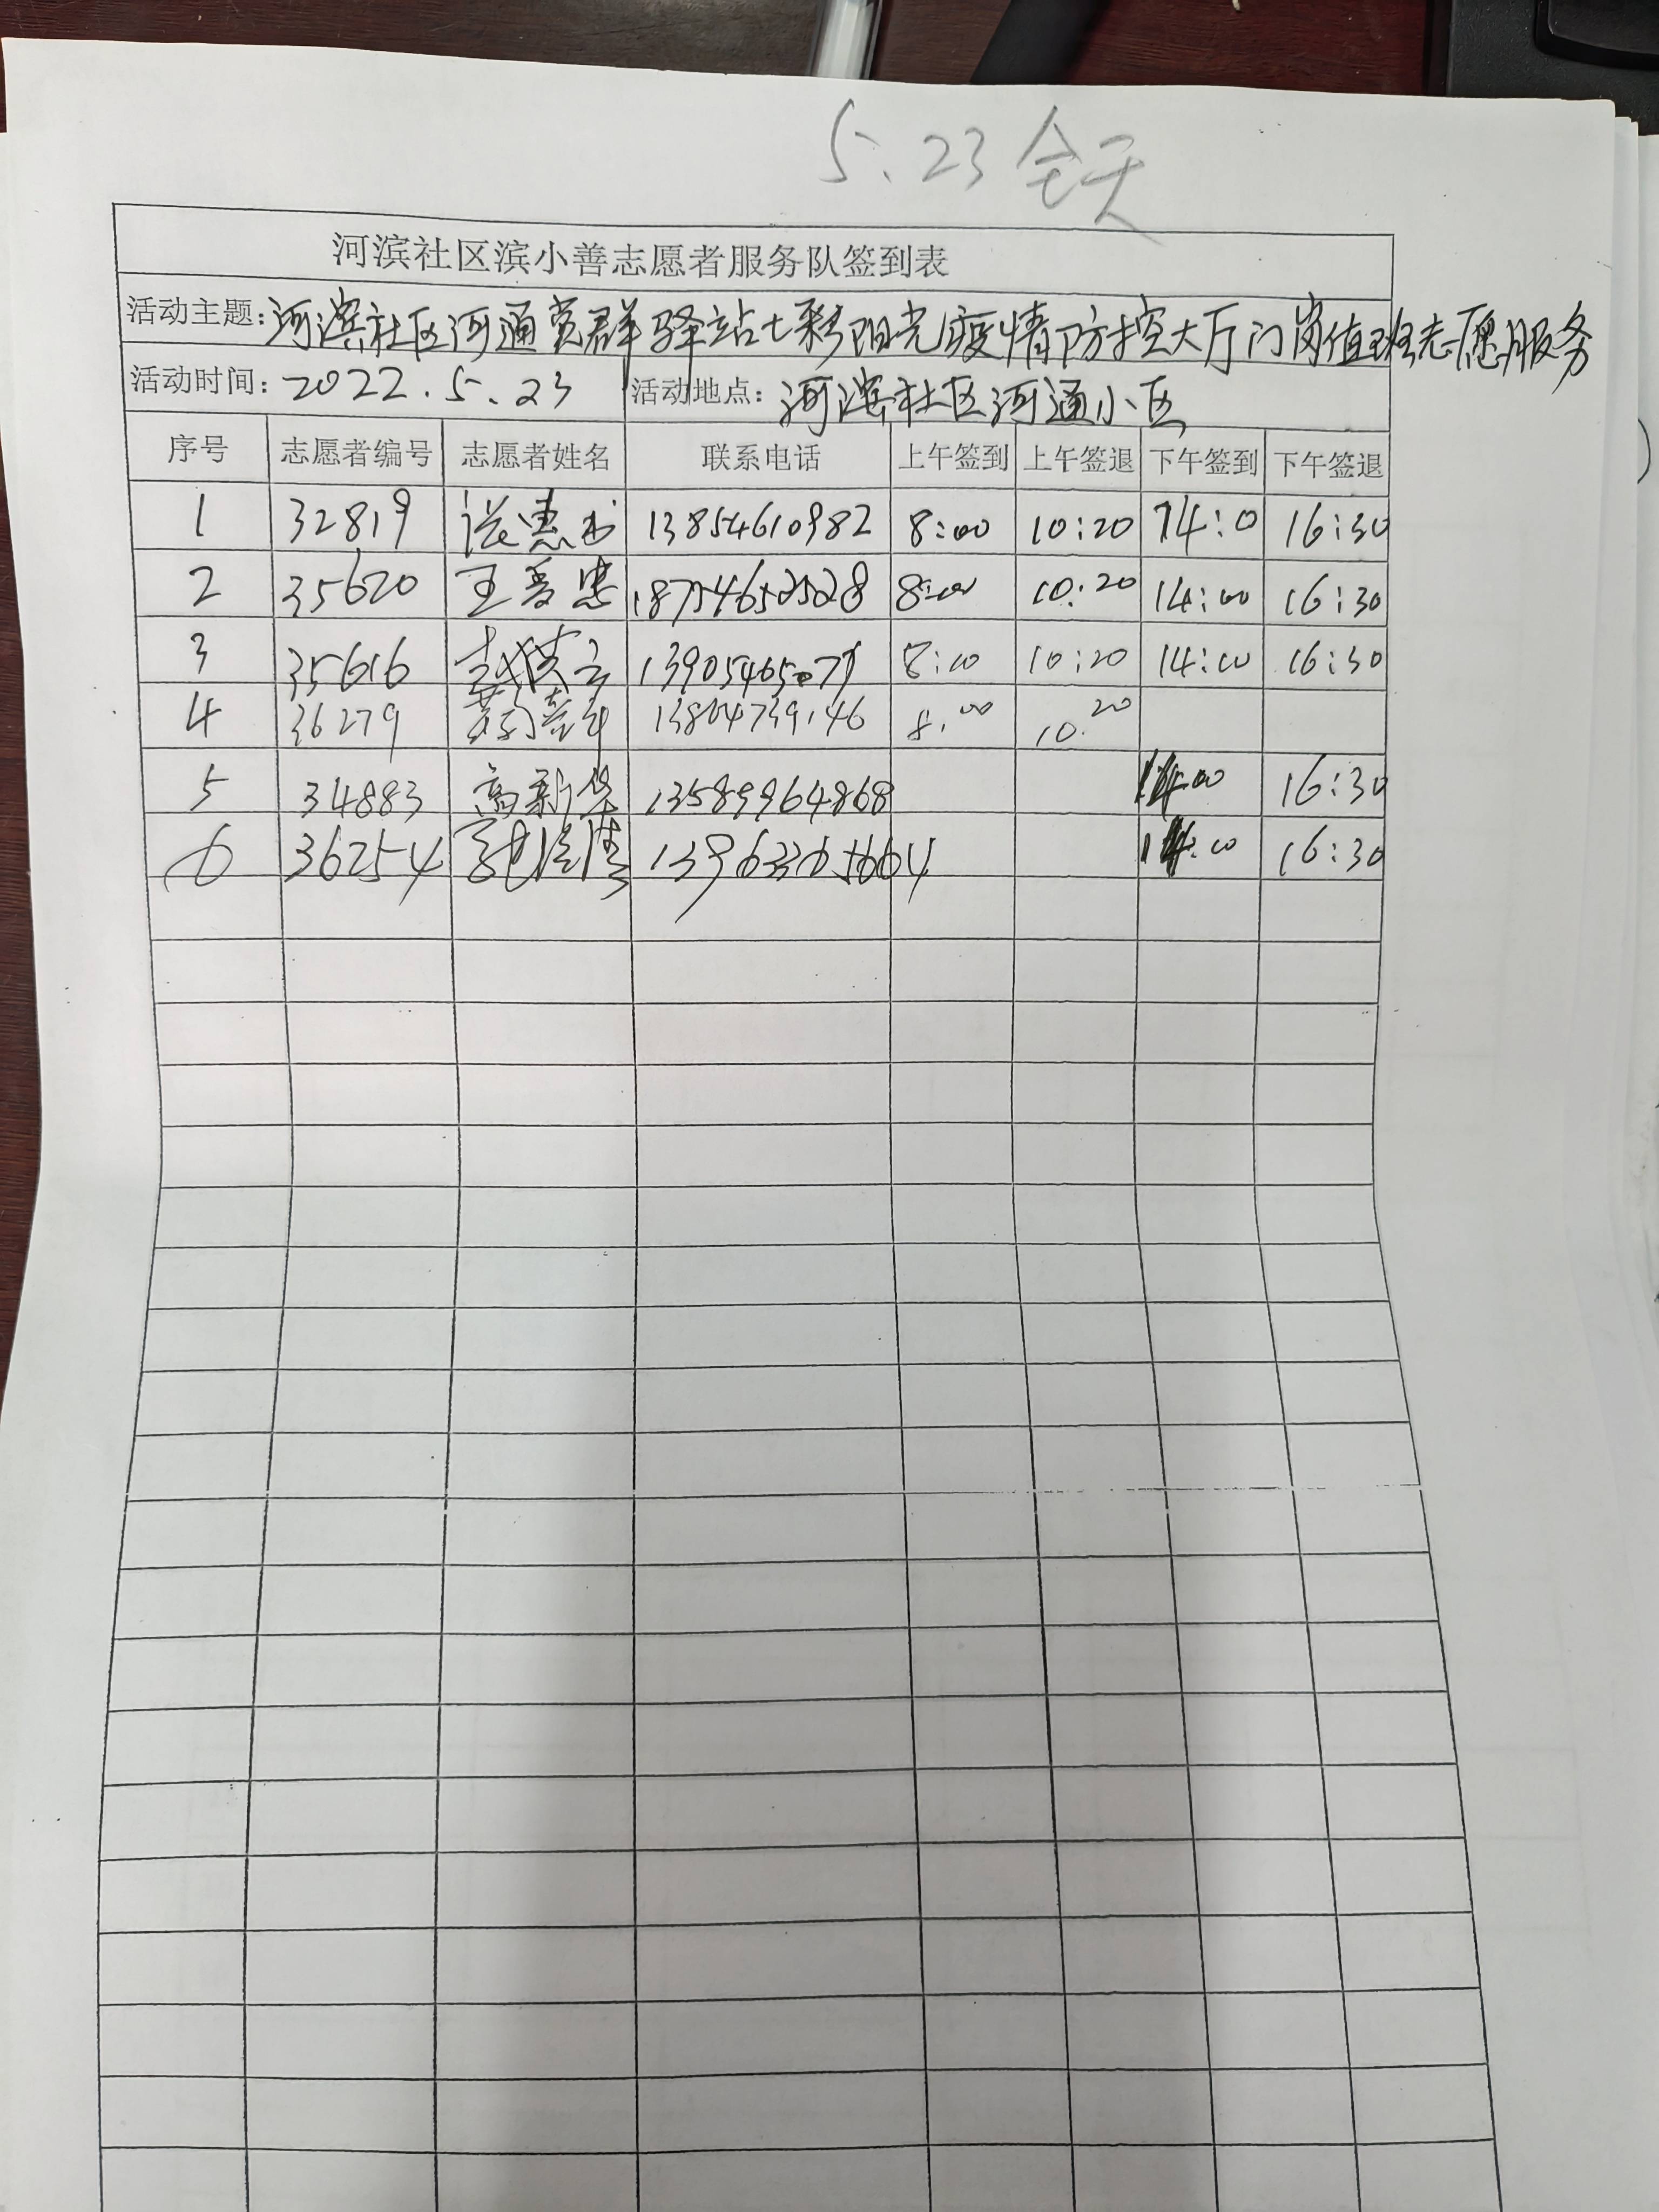 5.23 全天
河滨社区滨小善志愿者服务队签到表
活动主题:河滨社区河通党群驿站七彩阳光疫情防控大厅门岗值班志愿服务
活动时间:2022.5.23 活动地点:河滨社区河通小区
序号 志愿者编号 志愿者姓名 联系电话 上午签到 上午签退 下午签到 下午签退
1 32819 13854610982 8:00 10:20 14:0 16:30
2 35620 王爱忠 18754652528 8:00 10:20 14:00 16:30
3 35616 8:00 10:20 14:00 16:30
4 36279 8.00 10.20
5 34883 高新华 13589964868 14:00 16:30
6 36254 14:00 16:30